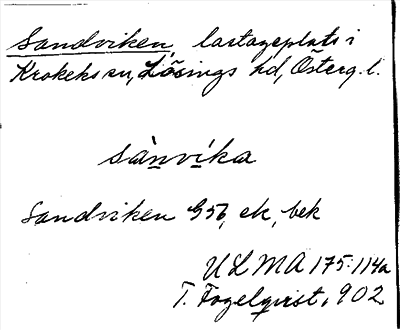 Sandviken, lastageplats i
Krokeks sn, Lösings hd, Österg. l.
sànvíka
Sandviken G56, ek, bek
ULMA 175:114a
T. Fogelqvist, 902